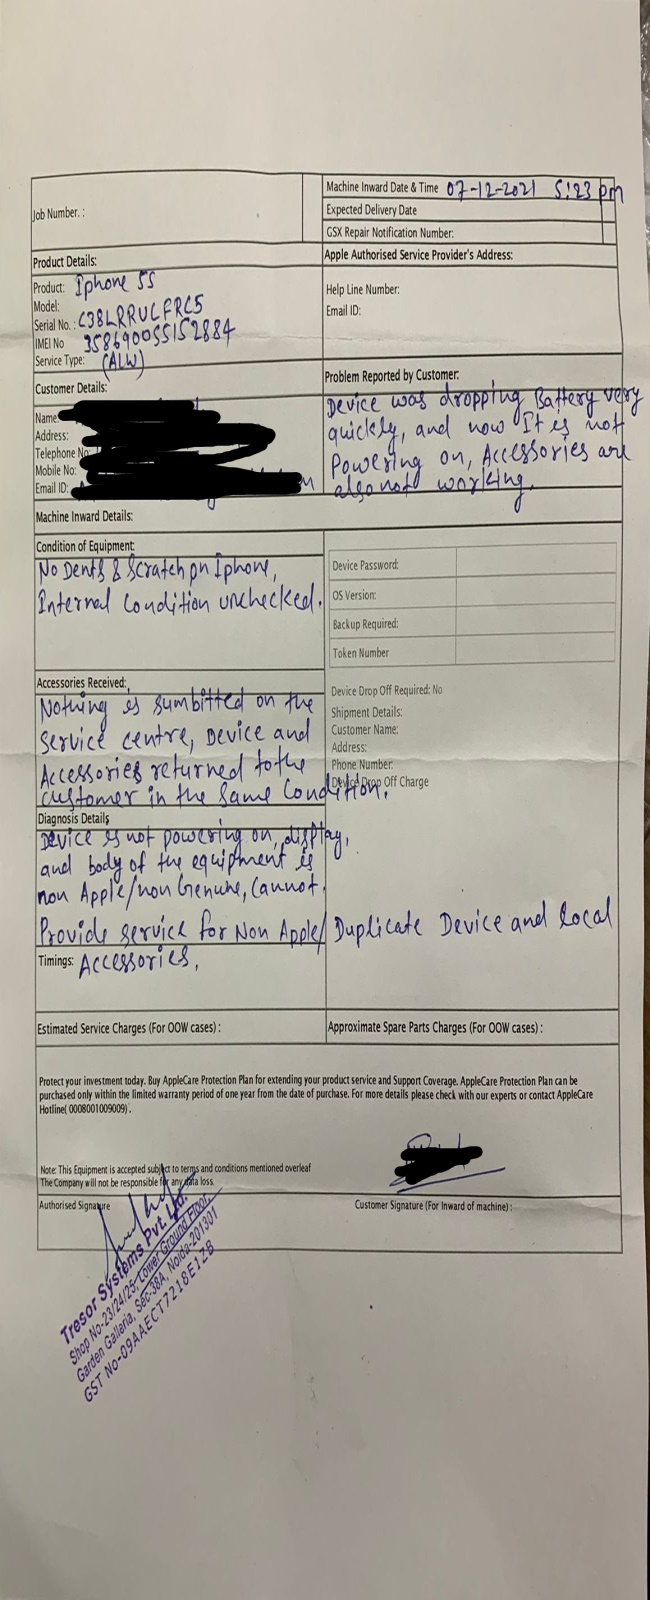 Job Number. :
Machine Inward Date & Time 07-12-2021 5:23 pm
Expected Delivery Date
GSX Repair Notification Number:
Product Details:
Apple Authorised Service Provider's Address:
Product: Iphone 5S
Model:
Serial No. : C38LRRULFRC5
IMEI No 358690055152884
Service Type: (ALW)
Help Line Number:
Email ID:
Customer Details:
Name:
Address:
Telephone No:
Mobile No:
Email ID:
Problem Reported by Customer:
Device was dropping Battery very
quickly, and now It is not
Powering on, Accessories are
also not working.
Machine Inward Details:
Condition of Equipment:
No Dents & Scratch on Iphone,
Internal Condition unchecked.
Device Password:
OS Version:
Backup Required:
Token Number
Accessories Received:
Nothing is sumbitted on the
service centre, Device and
Accessories returned to the
customer in the same Condition.
Device Drop Off Required: No
Shipment Details:
Customer Name:
Address:
Phone Number:
Device Drop Off Charge
Diagnosis Details
Device is not powering on, display,
and body of the equipment is
non Apple/non Genune, Cannot
Provide service for Non Apple/ Duplicate Device and local
Timings: Accessories,
Estimated Service Charges (For OOW cases) :
Approximate Spare Parts Charges (For OOW cases) :
Protect your investment today. Buy AppleCare Protection Plan for extending your product service and Support Coverage. AppleCare Protection Plan can be
purchased only within the limited warranty period of one year from the date of purchase. For more details please check with our experts or contact AppleCare
Hotline( 0008001009009) .
Note: This Equipment is accepted subject to terms and conditions mentioned overleaf
The Company will not be responsible for any data loss.
Authorised Signature
Customer Signature (For Inward of machine) :
Tresor Systems Pvt. Ltd.
Shop No-23/24/25, Lower Ground Floor,
Garden Galleria, Sec-38A, Noida-201301
GST No-09AAECT7218E1ZB